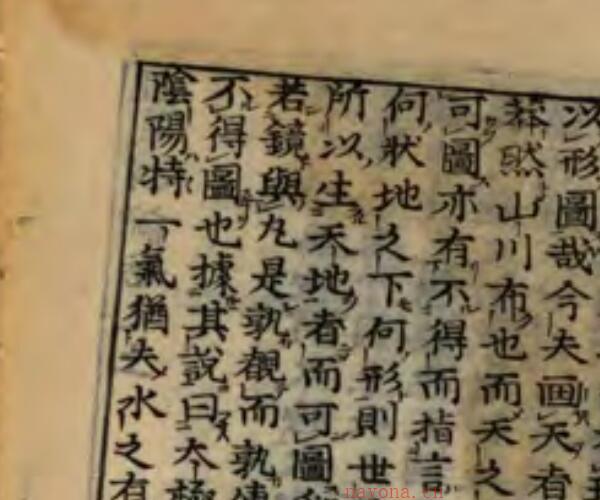 以形圖哉今夫画天者
莽然山川布也而天之
可圖亦有不得而指言
何狀地之下何形則世
所以生天地者而可圖
若鏡與丸是孰覩而孰傳
不得圖也據其說曰太極
陰陽特一氣猶夫水之有
nayona.cn